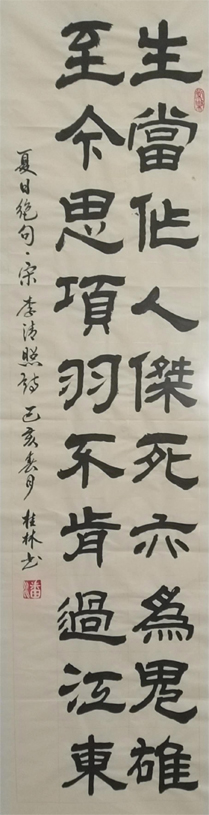 生當作人傑死亦為鬼雄
至今思項羽不肯過江東
夏日絕句·宋李清照詩己亥春月桂林书